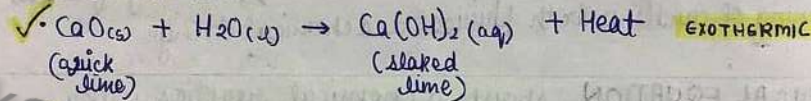 ✓• CaO(s) + H2O(l) → Ca(OH)2 (aq) + Heat EXOTHERMIC
(quick lime) (slaked lime)